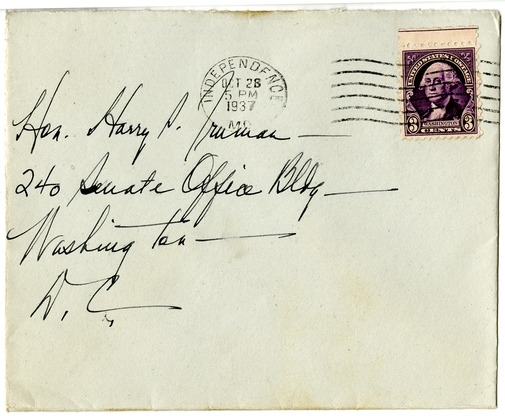 INDEPENDENCE
OCT 26
5 PM
1937
MO
UNITED STATES POSTAGE
3 WASHINGTON 3
CENTS
Hon. Harry S. Truman —
240 Senate Office Bldg —
Washington —
D. C.